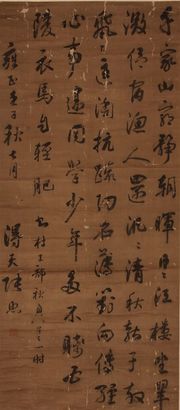 千家山郭静朝暉日日江樓坐翠
微信宿漁人還泛泛清秋燕子故
飛飛匡衡抗疏功名薄劉向傳經
心事違同學少年多不賤五
陵衣馬自輕肥 杜工部秋興之一時
雍正壬子秋七月
得天張照